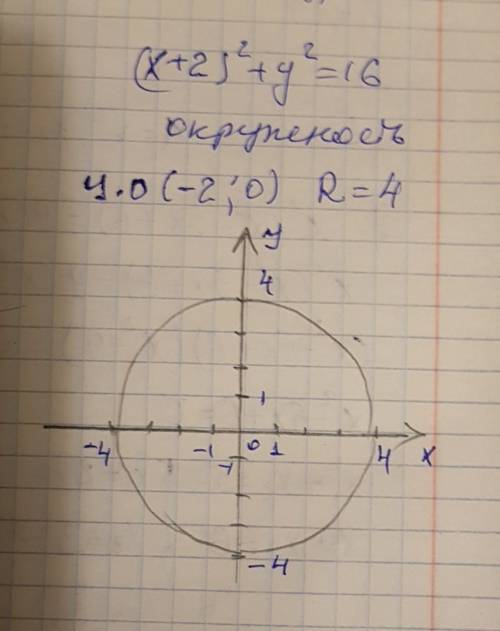 (x+2)²+y²=16
окружность
ц.о (-2; 0) R=4
y
4
1
-4 -1 0 1 4 x
-1
-4